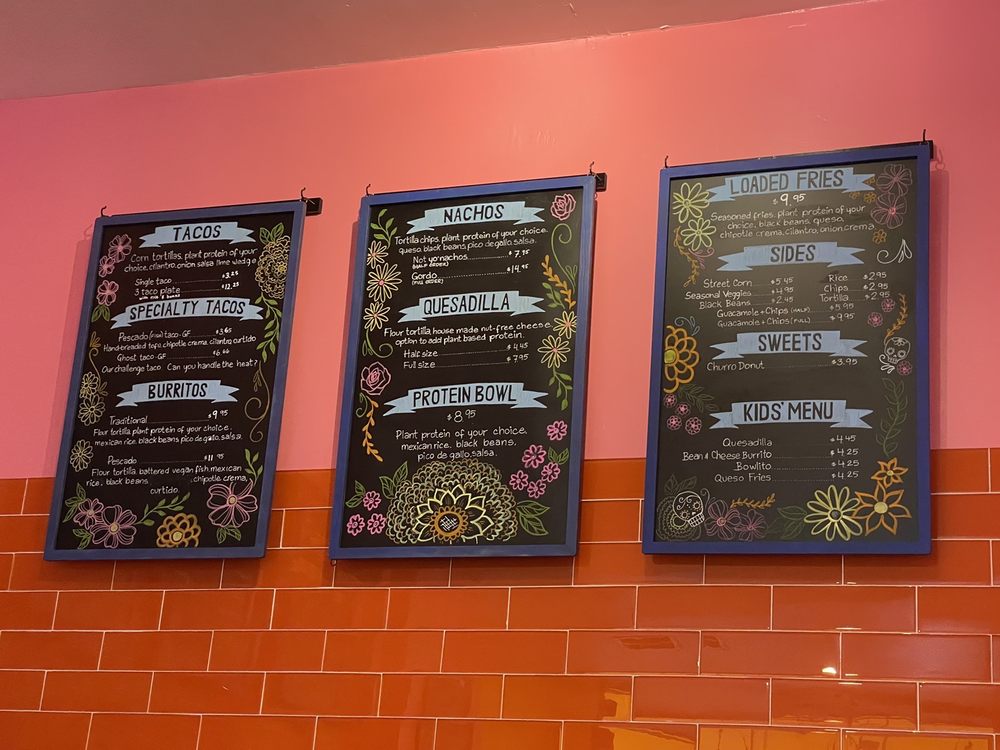 TACOS
Corn tortillas, plant protein of your
choice, cilantro, onion, salsa, lime wedge
Single taco $3.25
3 taco plate $12.25
with rice & beans
SPECIALTY TACOS
Pescado (fish) taco-GF $3.65
Hand-breaded tofu, chipotle crema, cilantro, curtido
Ghost taco-GF $6.66
Our challenge taco. Can you handle the heat?
BURRITOS
Traditional $9.95
Flour tortilla, plant protein of your choice,
mexican rice, black beans, pico de gallo, salsa.
Pescado $11.95
Flour tortilla, battered vegan fish, mexican
rice, black beans, chipotle crema,
curtido.
NACHOS
Tortilla chips, plant protein of your choice,
queso, black beans, pico de gallo, salsa.
Not yo'nachos $7.95
(HALF ORDER)
Gordo $14.95
(FULL ORDER)
QUESADILLA
Flour tortilla, house made nut-free cheese
option to add plant based protein.
Half size $4.45
Full size $7.95
PROTEIN BOWL
$8.95
Plant protein of your choice,
mexican rice, black beans,
pico de gallo, salsa.
LOADED FRIES
$9.95
Seasoned fries, plant protein of your
choice, black beans, queso,
chipotle crema, cilantro, onion, crema
SIDES
Street Corn $5.45 Rice $2.95
Seasonal Veggies $4.95 Chips $2.95
Black Beans $2.45 Tortilla $2.95
Guacamole + Chips (HALF) $5.95
Guacamole + Chips (FULL) $9.95
SWEETS
Churro Donut $3.95
KIDS' MENU
Quesadilla $4.45
Bean & Cheese Burrito $4.25
Bowlito $4.25
Queso Fries $4.25